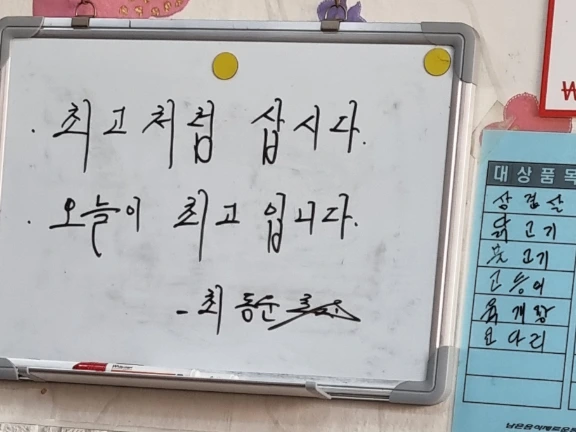 · 최고처럼 삽시다.
· 오늘이 최고입니다.
- 최동순
대상품목
삼겹살
닭고기
고등어
육개장